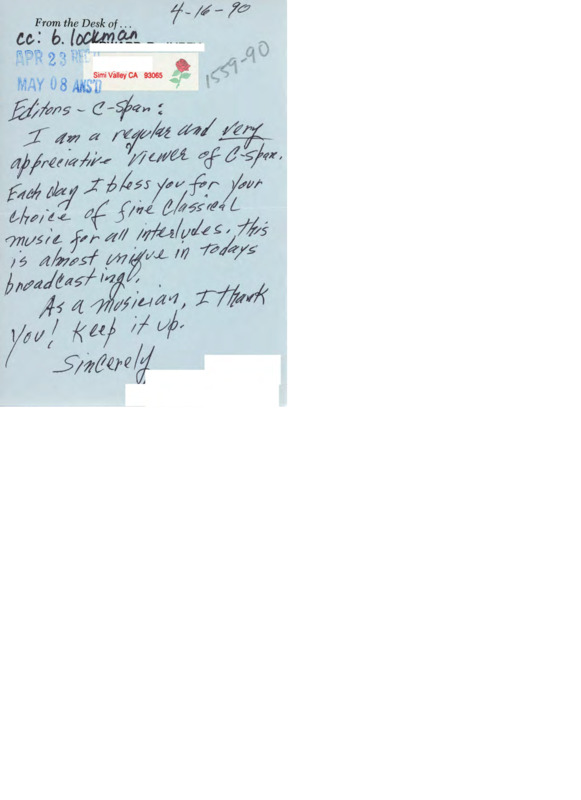 4-16-90
From the Desk of...
cc: b. lockman
APR 23 REC'D
Simi Valley CA 93065
1559-90
MAY 08 ANS'D
Editors - C-Span:
I am a regular and very
appreciative viewer of C-Span.
Each day I bless you for your
choice of fine classical
music for all interludes. this
is almost unique in todays
broadcasting!.
As a musician, I thank
you! Keep it up.
Sincerely